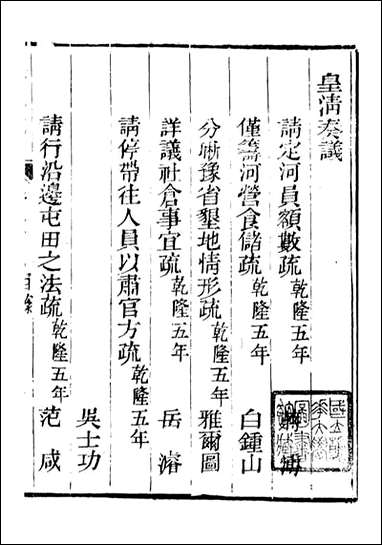 皇清奏議
請定河員額數疏乾隆五年
僅籌河營食儲疏乾隆五年 白鍾山
分晰豫省墾地情形疏乾隆五年 雅爾圖
詳議社倉事宜疏乾隆五年 岳濬
請停帶往人員以肅官方疏乾隆五年
吳士功
請行沿邊屯田之法疏乾隆五年 范咸